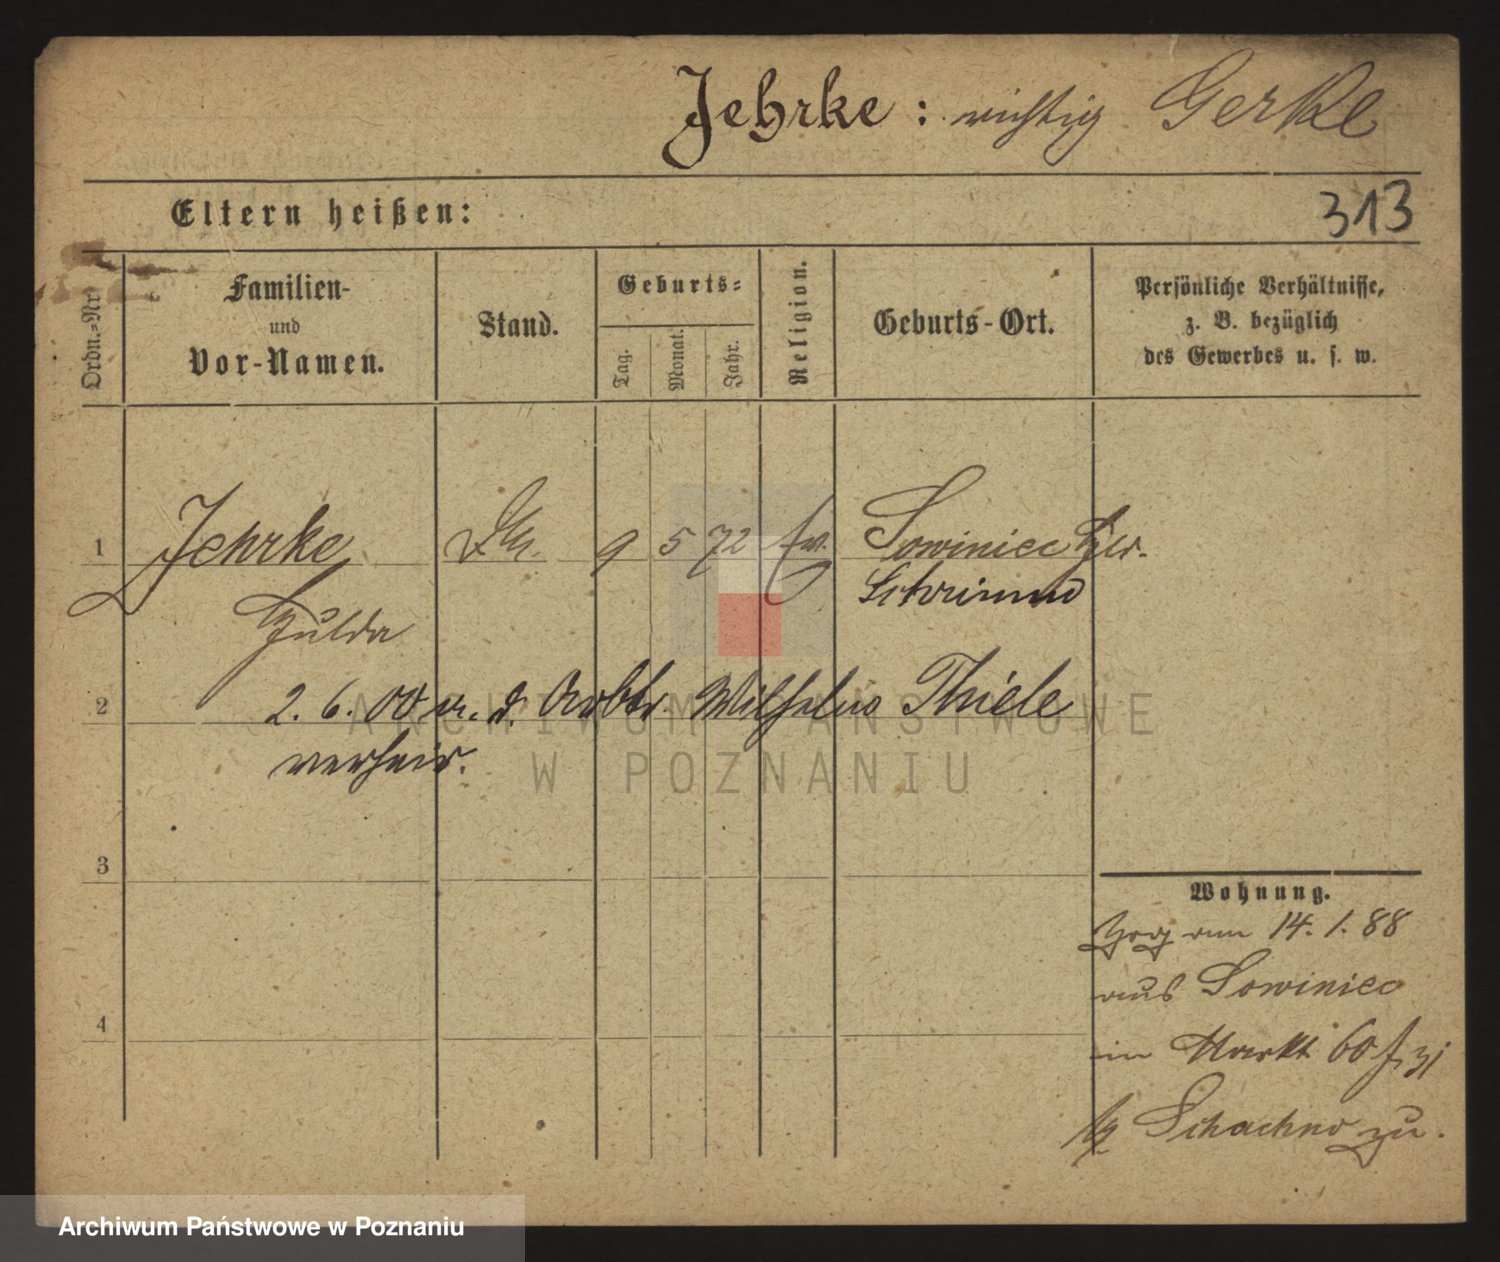 Jehrke : richtig Gerke
Eltern heißen:
313
Ordn.-Nr
Familien-
und
Vor-Namen.
Stand.
Geburts-
Tag.
Monat.
Jahr.
Religion.
Geburts-Ort.
Persönliche Verhältnisse,
z. B. bezüglich
des Gewerbes u. s. w.
1
Jehrke
9 5 72 ev.
Sowiniec
Schrimm
Hulda
2
2. 6. 00 m. d. Arbtr. Wilhelm Thiele
verheir.
3
4
Wohnung.
Zog am 14. 1. 88
aus Sowiniec
in Markt 60
Schachno zu.
ARCHIWUM PAŃSTWOWE
W POZNANIU
Archiwum Państwowe w Poznaniu